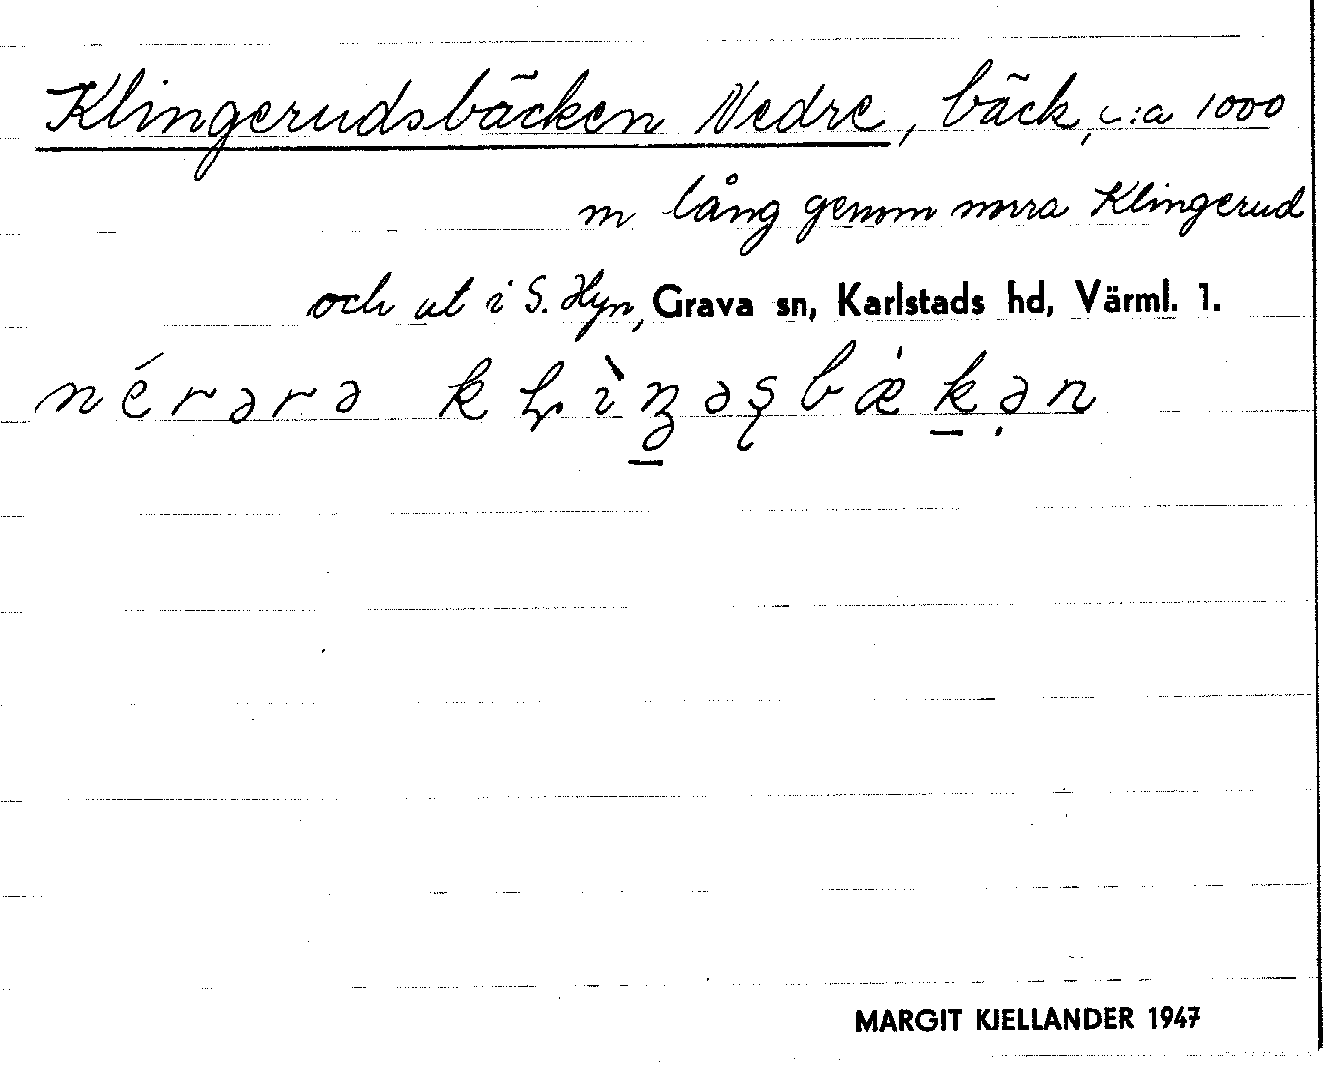 Klingerudsbäcken Nedre, bäck, c:a 1000
m lång genom norra Klingerud
och ut i S. Hyn, Grava sn, Karlstads hd, Värml. 1.
nérərə
MARGIT KJELLANDER 1947